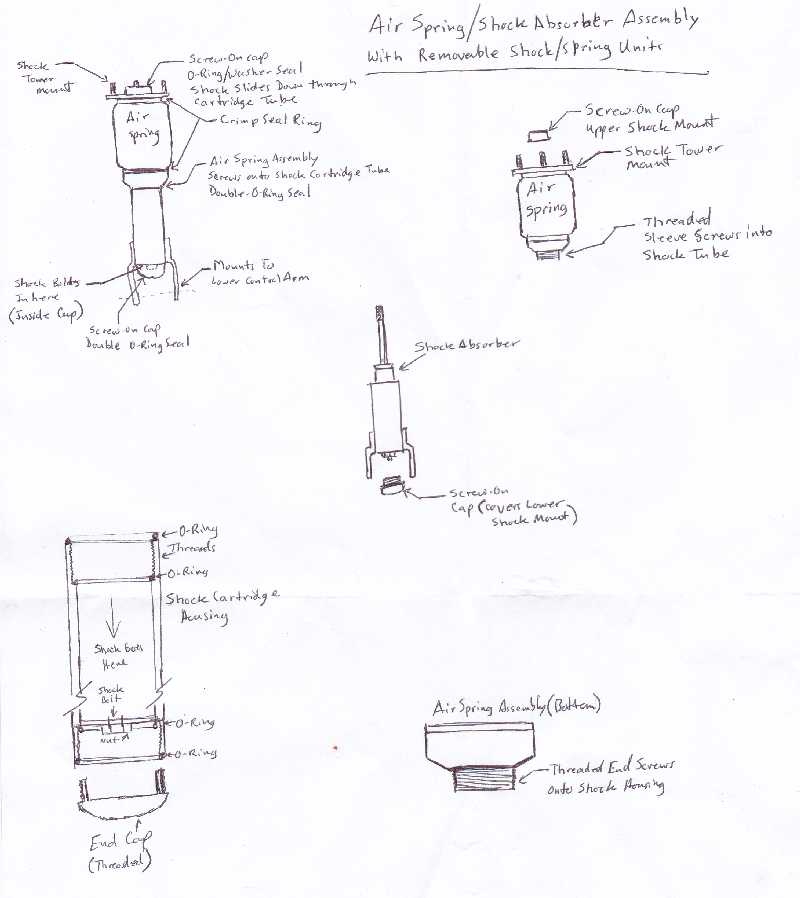 Air Spring/Shock Absorber Assembly
With Removable Shock/Spring Units
Shock
Tower
Mount
Screw-On Cap
O-Ring/Washer Seal
Shock Slides Down through
Cartridge Tube
Crimp Seal Ring
Air
Spring
Air Spring Assembly
Screws onto Shock Cartridge Tube
Double-O-Ring Seal
Mounts To
Lower Control Arm
Shock Bolts
In here
(Inside Cap)
Screw-on Cap
Double O-Ring Seal
Screw-On Cap
Upper Shock Mount
Shock Tower
Mount
Air
Spring
Threaded
Sleeve Screws into
Shock Tube
Shock Absorber
Screw-On
Cap (Covers Lower
Shock Mount)
O-Ring
Threads
O-Ring
Shock Cartridge
Housing
Shock
Here
Shock
Bolt
Nut
O-Ring
O-Ring
End Cap
(Threaded)
Air Spring Assembly (Bottom)
Threaded End Screws
onto Shock Housing